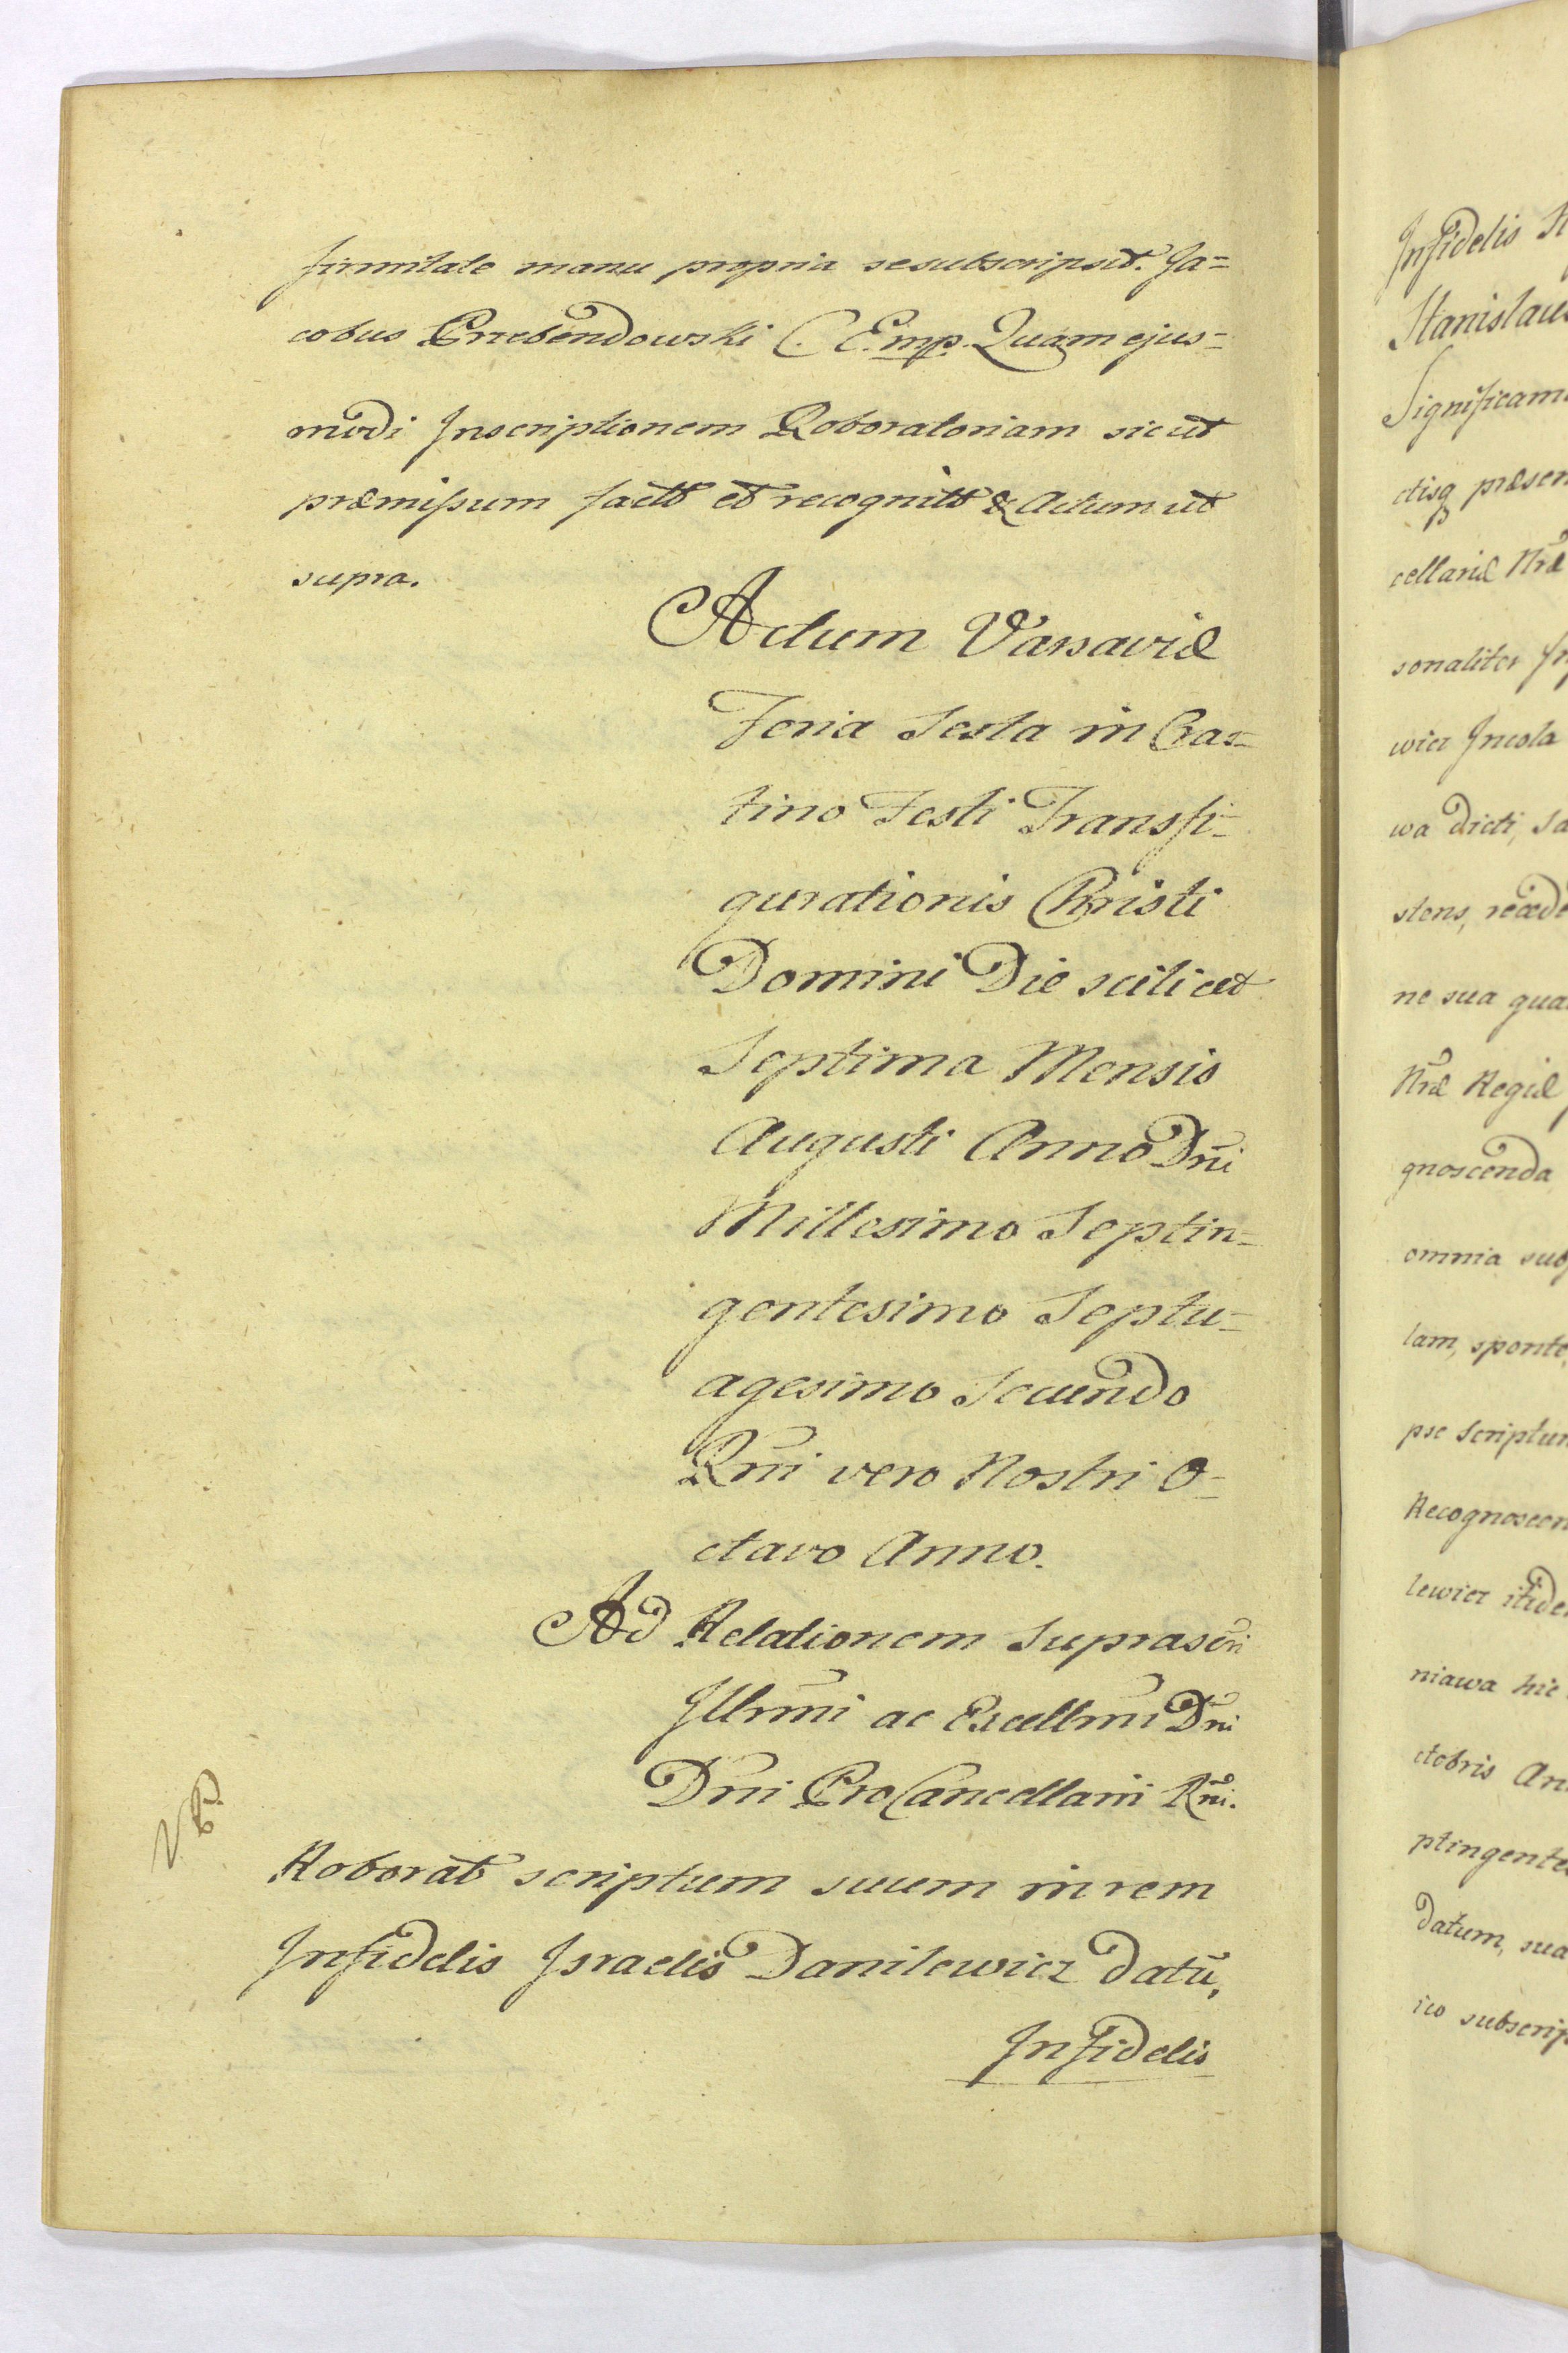 firmitate manu propria sesubscripsit. Ja=
cobus Przebendowski C. E. mp. Quam ejus=
modi Inscriptionem Roboratoriam sicut
præmissum factt et recognitt & Actum ut
supra.
Actum Varsaviæ
Feria Sexta in Cras=
tino Festi Transfi=
gurationis Christi
Domini Die scilicet
Septima Mensis
Augusti Anno Dni
Millesimo Septin=
gentesimo Septu=
agesimo Secundo
Rni vero Nostri O=
ctavo Anno.
Ad Relationem Suprascri
Illrmi ac Excellmi Dni
Dni ProCancellarii Rni.
Roborat scriptum suum in rem
Infidelis Israelis Danilewicz datū,
Infidelis
Infidelis
Stanislaus
Significam
ctisq præsen
cellariæ Nræ
sonaliter
wicz Incola
wa dicti, sa
stens, recede
ne sua qua
Nræ Regiæ
gnoscenda
omnia sub
lam, sponte,
pse Scriptum
Recognoscen
lewicz itide
niawa hic
ctobris An
ptingente
datum, sua
ico subscrip